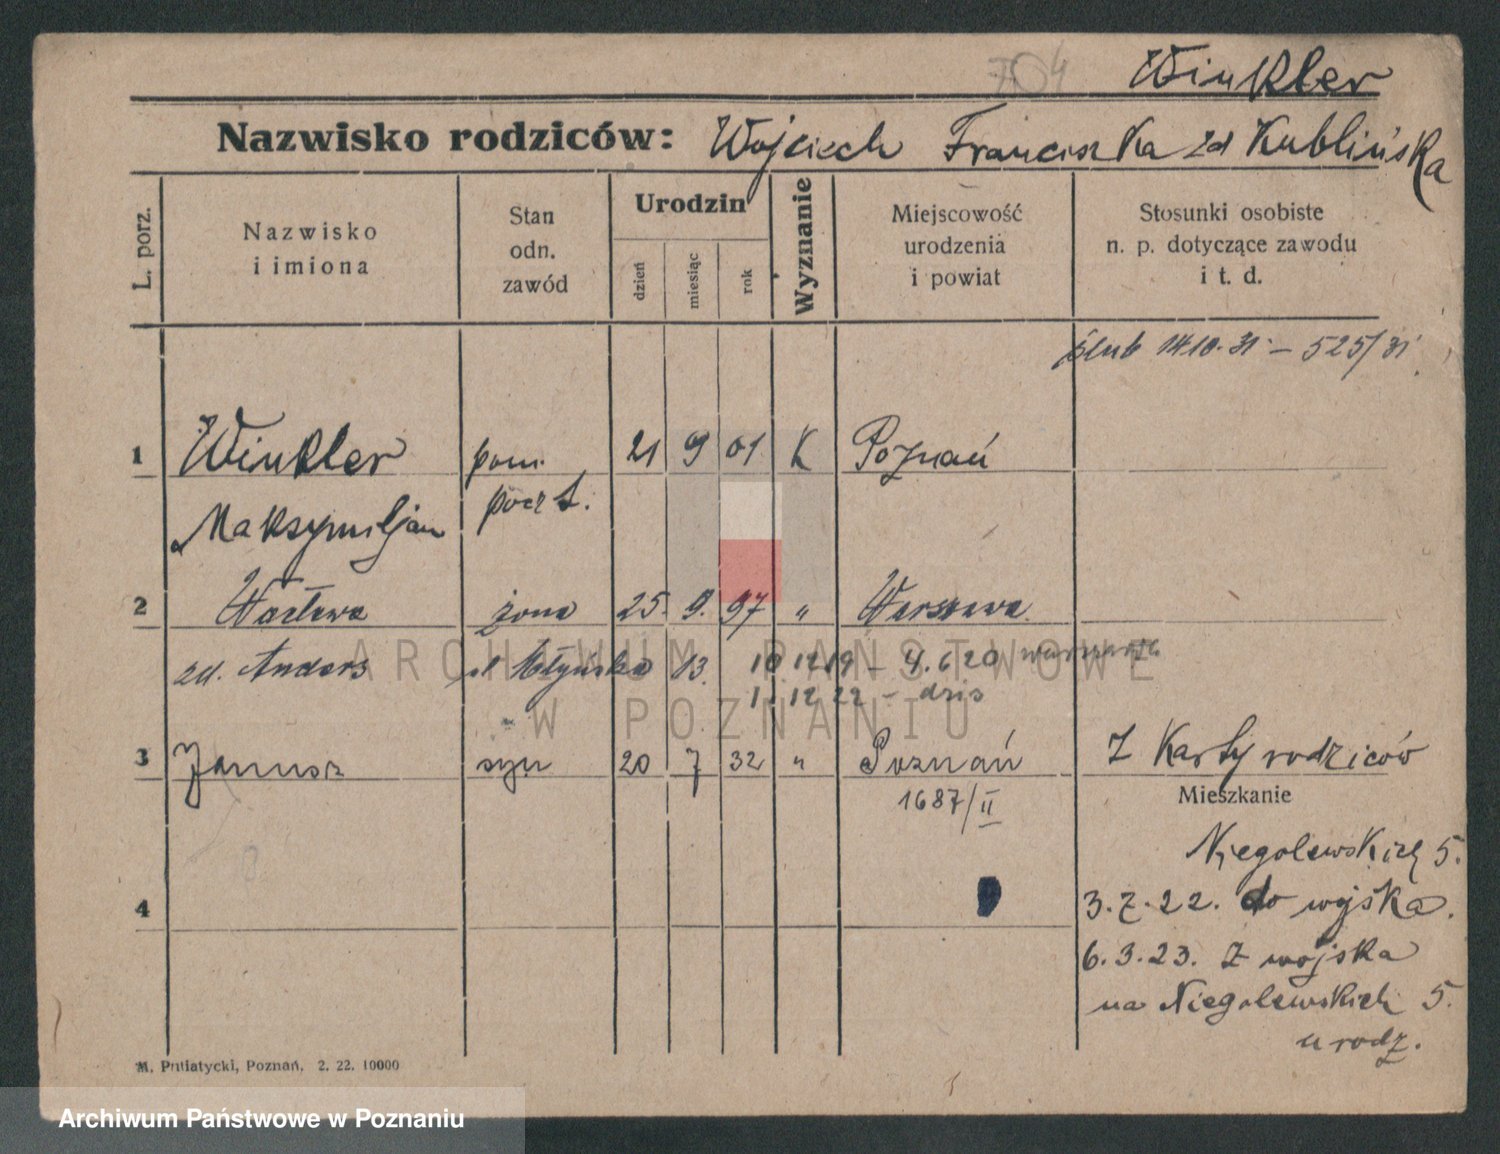 704 Winkler
Nazwisko rodziców: Wojciech Franciszka zd Kublińska
L. porz.
Nazwisko i imiona
Stan odn. zawód
Urodzin
dzień miesiąc rok
Wyznanie
Miejscowość urodzenia i powiat
Stosunki osobiste n. p. dotyczące zawodu i t. d.
ślub 14.10.31 – 525/31
1 Winkler pom. 21 9 01 K Poznań
Maksymiljan poczt.
2 Wacława żona 25. 9. 97 " Warszawa
zd. Anders ul Młyńska 13. 10 12 19 – 4.6 20
1.12 22 – dziś
3 Janusz syn 20 7 32 " Poznań Z Karty rodziców
1687/II
Mieszkanie
Niegolewskich 5.
3.7.22. do wojska.
4
6.3.23. Z wojska
na Niegolewskich 5.
urodz.
M. Putiatycki, Poznań. 2. 22. 10000
ARCHIWUM PAŃSTWOWE
W POZNANIU
Archiwum Państwowe w Poznaniu